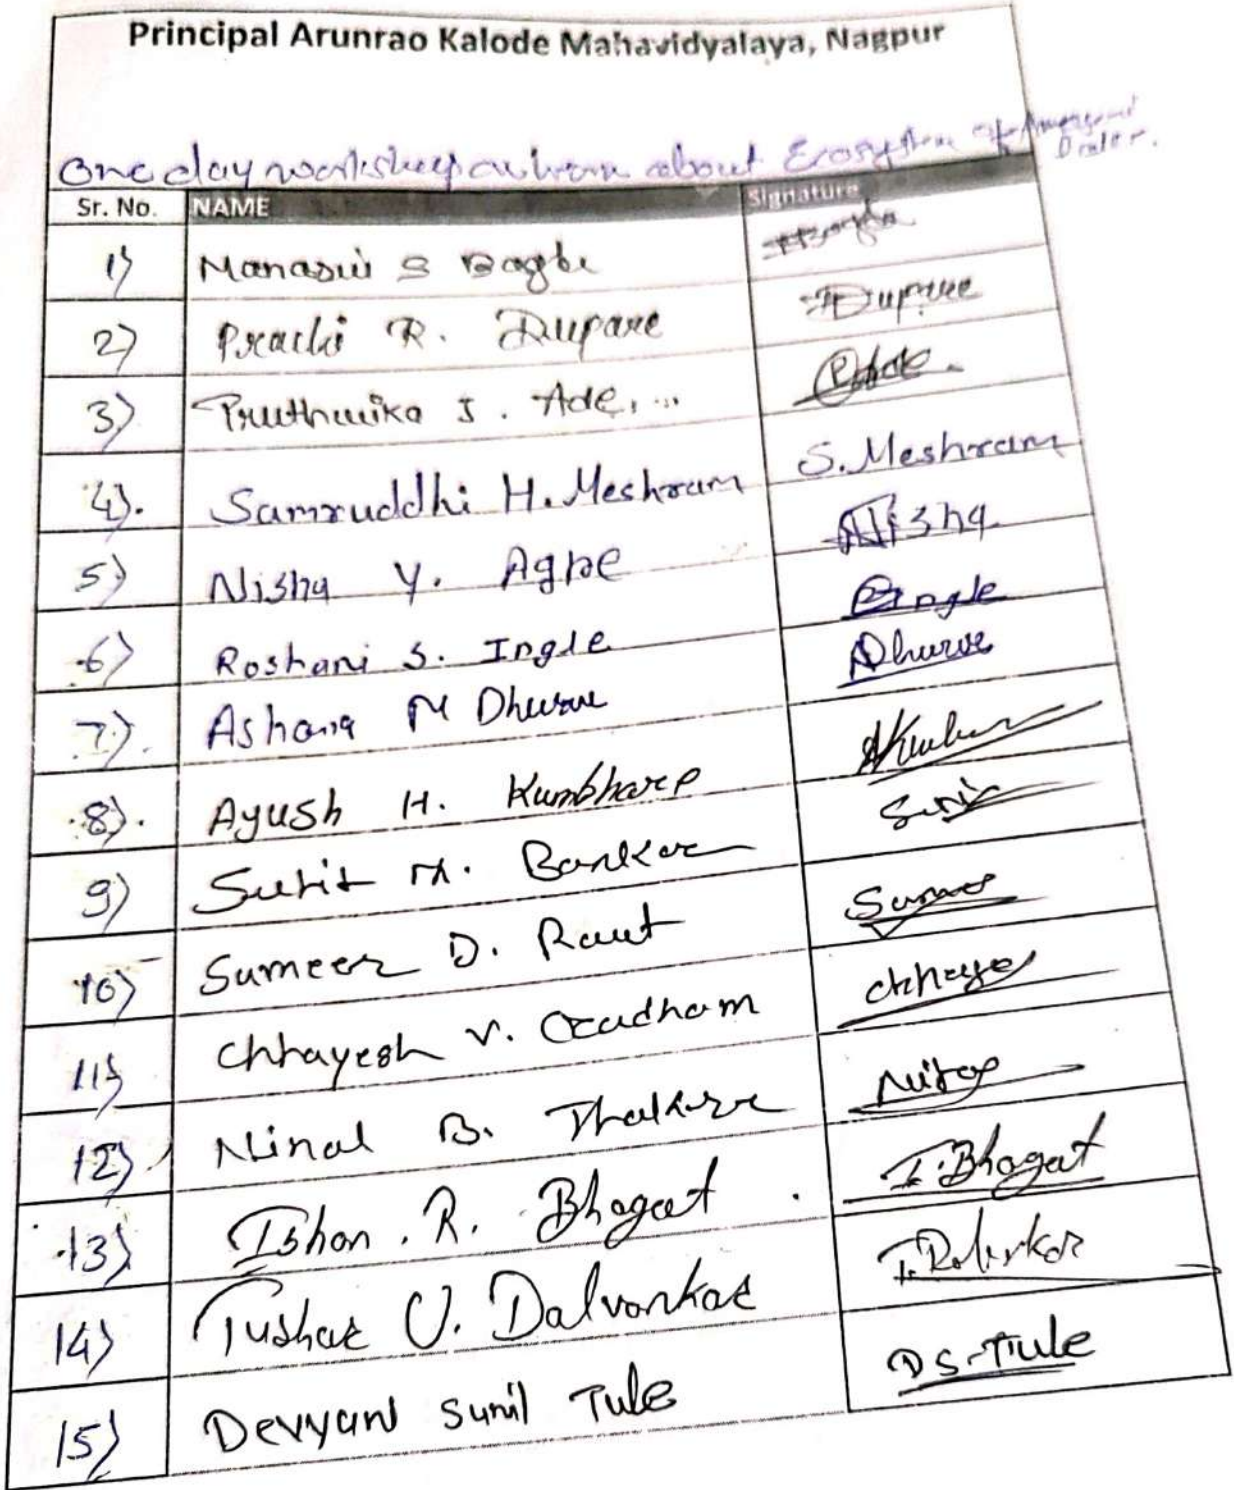 Principal Arunrao Kalode Mahavidyalaya, Nagpur
One day workshop about Ecosystem of
Sr. No. NAME Signature
1) Manaswi S Bagde
2) Prachi R. Dupare Dupare
3) Pruthwika J. Ade...
4). Samruddhi H. Meshram S. Meshram
5) Nisha Y. Agre Nisha
6) Roshani S. Ingle Ingle
7). Ashana M Dhurve Dhurve
8). Ayush H. Kumbhare
9) Surit M. Bankar
10) Sumeer D. Raut
11) Chhayesh V. chhaye
12) Ninal B. Thakre
13) Ishan. R. Bhagat I. Bhagat
14) Tushar U. Dalvankar
15) Devyani Sunil Tule D S. Tule